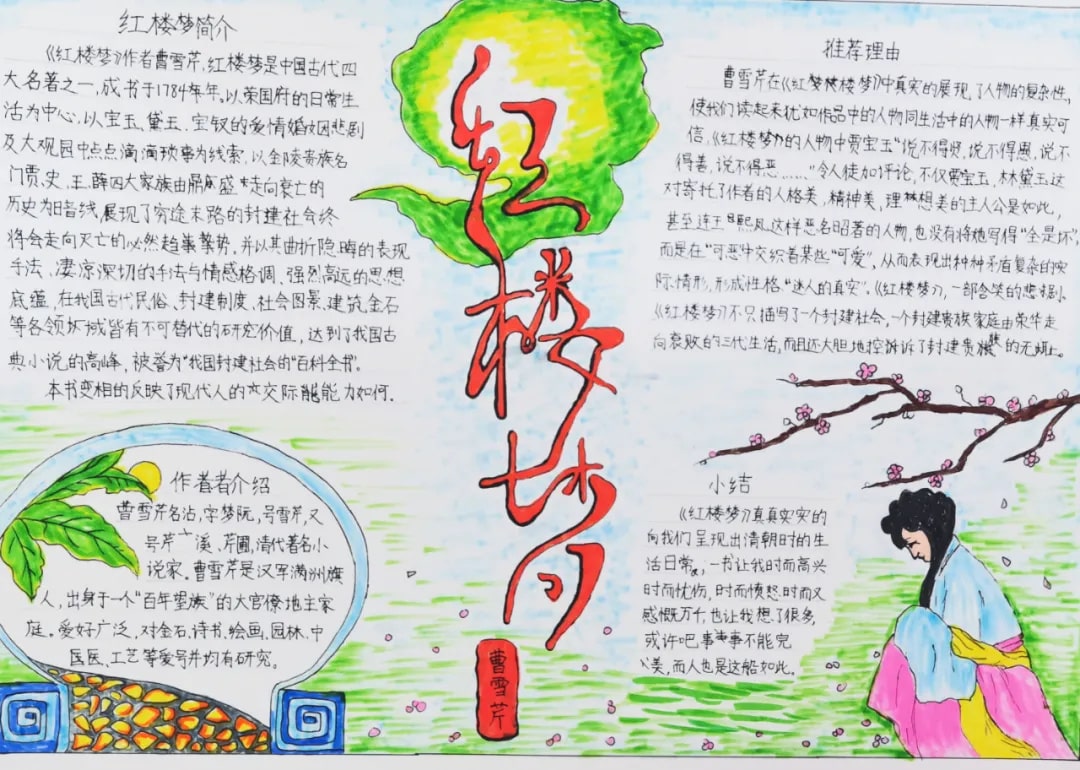 红楼梦简介
《红楼梦》作者曹雪芹,红楼梦是中国古代四
大名著之一,成书于1784年。以荣国府的日常生
活为中心,以宝玉、黛玉、宝钗的爱情婚姻悲剧
及大观园中点点滴滴琐事为线索,以金陵贵族名
门贾、史、王、薛四大家族由鼎盛走向衰亡的
历史为暗线,展现了穷途末路的封建社会终
将会走向灭亡的必然趋势。并以其曲折隐晦的表现
手法、凄凉深切的手法与情感格调、强烈高远的思想
底蕴,在我国古代民俗、封建制度、社会图景、建筑金石
等各领域皆有不可替代的研究价值,达到了我国古
典小说的高峰,被誉为“我国封建社会的百科全书”。
本书变相的反映了现代人的交际能力如何。
作者介绍
曹雪芹名沾,字梦阮,号雪芹,又
号芹溪、芹圃,清代著名小
说家。曹雪芹是汉军满洲旗
人,出身于一个“百年望族”的大官僚地主家
庭。爱好广泛,对金石、诗书、绘画、园林、中
医、工艺等爱号并均有研究。
红楼梦
曹雪芹
推荐理由
曹雪芹在《红楼梦》中真实的展现了人物的复杂性,
使我们读起来犹如作品中的人物同生活中的人物一样真实可
信,《红楼梦》的人物中贾宝玉“说不得贤,说不得愚,说不
得善,说不得恶……”令人徒加评论,不仅贾宝玉,林黛玉这
对寄托了作者的人格美,精神美,理想美的主人公是如此,
甚至连王熙凤这样恶名昭著的人物,也没有将她写得“全是坏”,
而是在“可恶”中交织着某些“可爱”,从而表现出种种矛盾复杂的实
际情形,形成性格“迷人的真实”。《红楼梦》,一部含笑的悲剧。
《红楼梦》不只描写了一个封建社会,一个封建贵族家庭由荣华走
向衰败的三代生活,而且还大胆地控诉了封建贵族的无耻。
小结
《红楼梦》真真实实的
向我们呈现出清朝时的生
活日常,一书让我时而高兴
时而忧伤,时而愤怒时而又
感慨万千,也让我想了很多,
或许吧,事事不能完
美,而人也是这般如此。